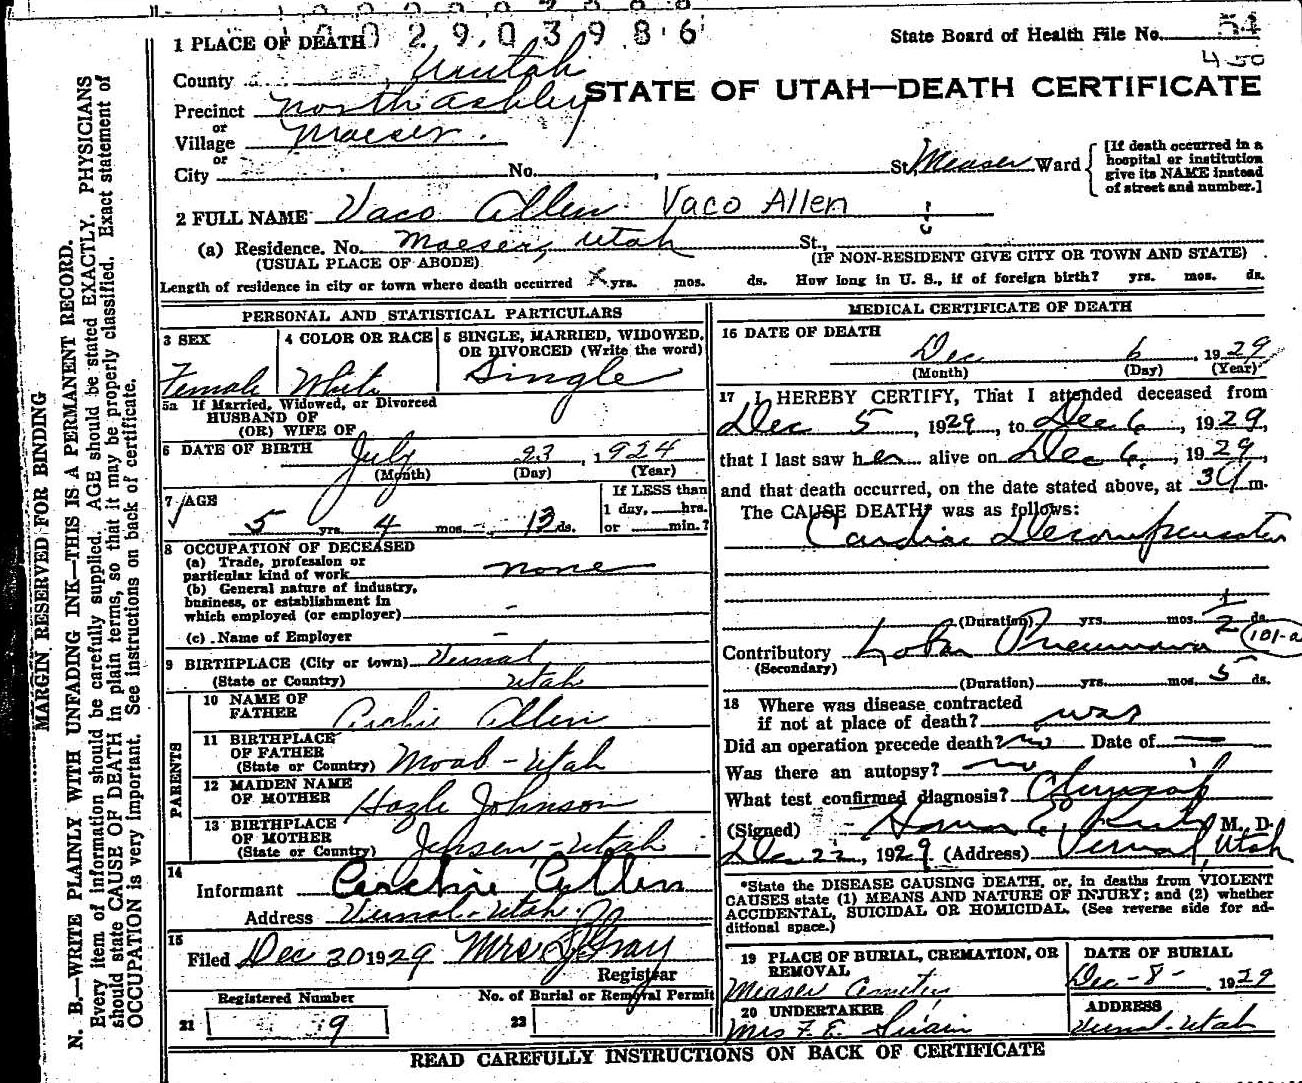 0 0 2 9 0 3 9 8 6
State Board of Health File No. 54
450
STATE OF UTAH—DEATH CERTIFICATE
1 PLACE OF DEATH
County Uintah
Precinct North Ashley
or
Village Maeser.
or
City No. , St. Measer Ward
[If death occurred in a hospital or institution give its NAME instead of street and number.]
2 FULL NAME Vaco Allen Vaco Allen
(a) Residence. No. Maeser, Utah St.,
(USUAL PLACE OF ABODE) (IF NON-RESIDENT GIVE CITY OR TOWN AND STATE)
Length of residence in city or town where death occurred yrs. mos. ds. How long in U. S., if of foreign birth? yrs. mos. ds.
PERSONAL AND STATISTICAL PARTICULARS
3 SEX
Female
4 COLOR OR RACE
White
5 SINGLE, MARRIED, WIDOWED, OR DIVORCED (Write the word)
Single
5a If Married, Widowed, or Divorced
HUSBAND OF
(OR) WIFE OF
6 DATE OF BIRTH July 23, 1924
(Month) (Day) (Year)
7 AGE
5 yrs. 4 mos. 13 ds.
If LESS than
1 day, hrs.
or min.?
8 OCCUPATION OF DECEASED
(a) Trade, profession or
particular kind of work none
(b) General nature of industry,
business, or establishment in
which employed (or employer) -
(c) Name of Employer -
9 BIRTHPLACE (City or town) Vernal
(State or Country) Utah
PARENTS
10 NAME OF
FATHER Archie Allen
11 BIRTHPLACE
OF FATHER
(State or Country) Moab - Utah
12 MAIDEN NAME
OF MOTHER Hazle Johnson
13 BIRTHPLACE
OF MOTHER
(State or Country) Jensen - Utah
14
Informant Archie Allen
Address Vernal - Utah.
15
Filed Dec 20 1929 Mrs Gray
Registrar
Registered Number
21 9
No. of Burial or Removal Permit
22
MEDICAL CERTIFICATE OF DEATH
16 DATE OF DEATH
Dec 6, 1929
(Month) (Day) (Year)
17 I HEREBY CERTIFY, That I attended deceased from
Dec 5, 1929, to Dec 6, 1929,
that I last saw her alive on Dec 6, 1929,
and that death occurred, on the date stated above, at m.
The CAUSE DEATH* was as follows:
Cardiac Decompensation
(Duration) yrs. mos. 1/2 ds.
Contributory Lobar Pneumonia 101-a
(Secondary)
(Duration) yrs. mos. 5 ds.
18 Where was disease contracted
if not at place of death? was
Did an operation precede death? no Date of —
Was there an autopsy? no
What test confirmed diagnosis?
(Signed) M. D.
Dec 22, 1929 (Address) Vernal, Utah
*State the DISEASE CAUSING DEATH, or, in deaths from VIOLENT
CAUSES state (1) MEANS AND NATURE OF INJURY; and (2) whether
ACCIDENTAL, SUICIDAL OR HOMICIDAL. (See reverse side for ad-
ditional space.)
19 PLACE OF BURIAL, CREMATION, OR
REMOVAL
Measer Cemetery
DATE OF BURIAL
Dec - 8 - , 1929
20 UNDERTAKER
Mrs F. E. Swain
ADDRESS
Vernal - Utah
READ CAREFULLY INSTRUCTIONS ON BACK OF CERTIFICATE
MARGIN RESERVED FOR BINDING
N. B.—WRITE PLAINLY WITH UNFADING INK—THIS IS A PERMANENT RECORD.
Every item of information should be carefully supplied. AGE should be stated EXACTLY. PHYSICIANS
should state CAUSE OF DEATH in plain terms, so that it may be properly classified. Exact statement of
OCCUPATION is very important. See instructions on back of certificate.